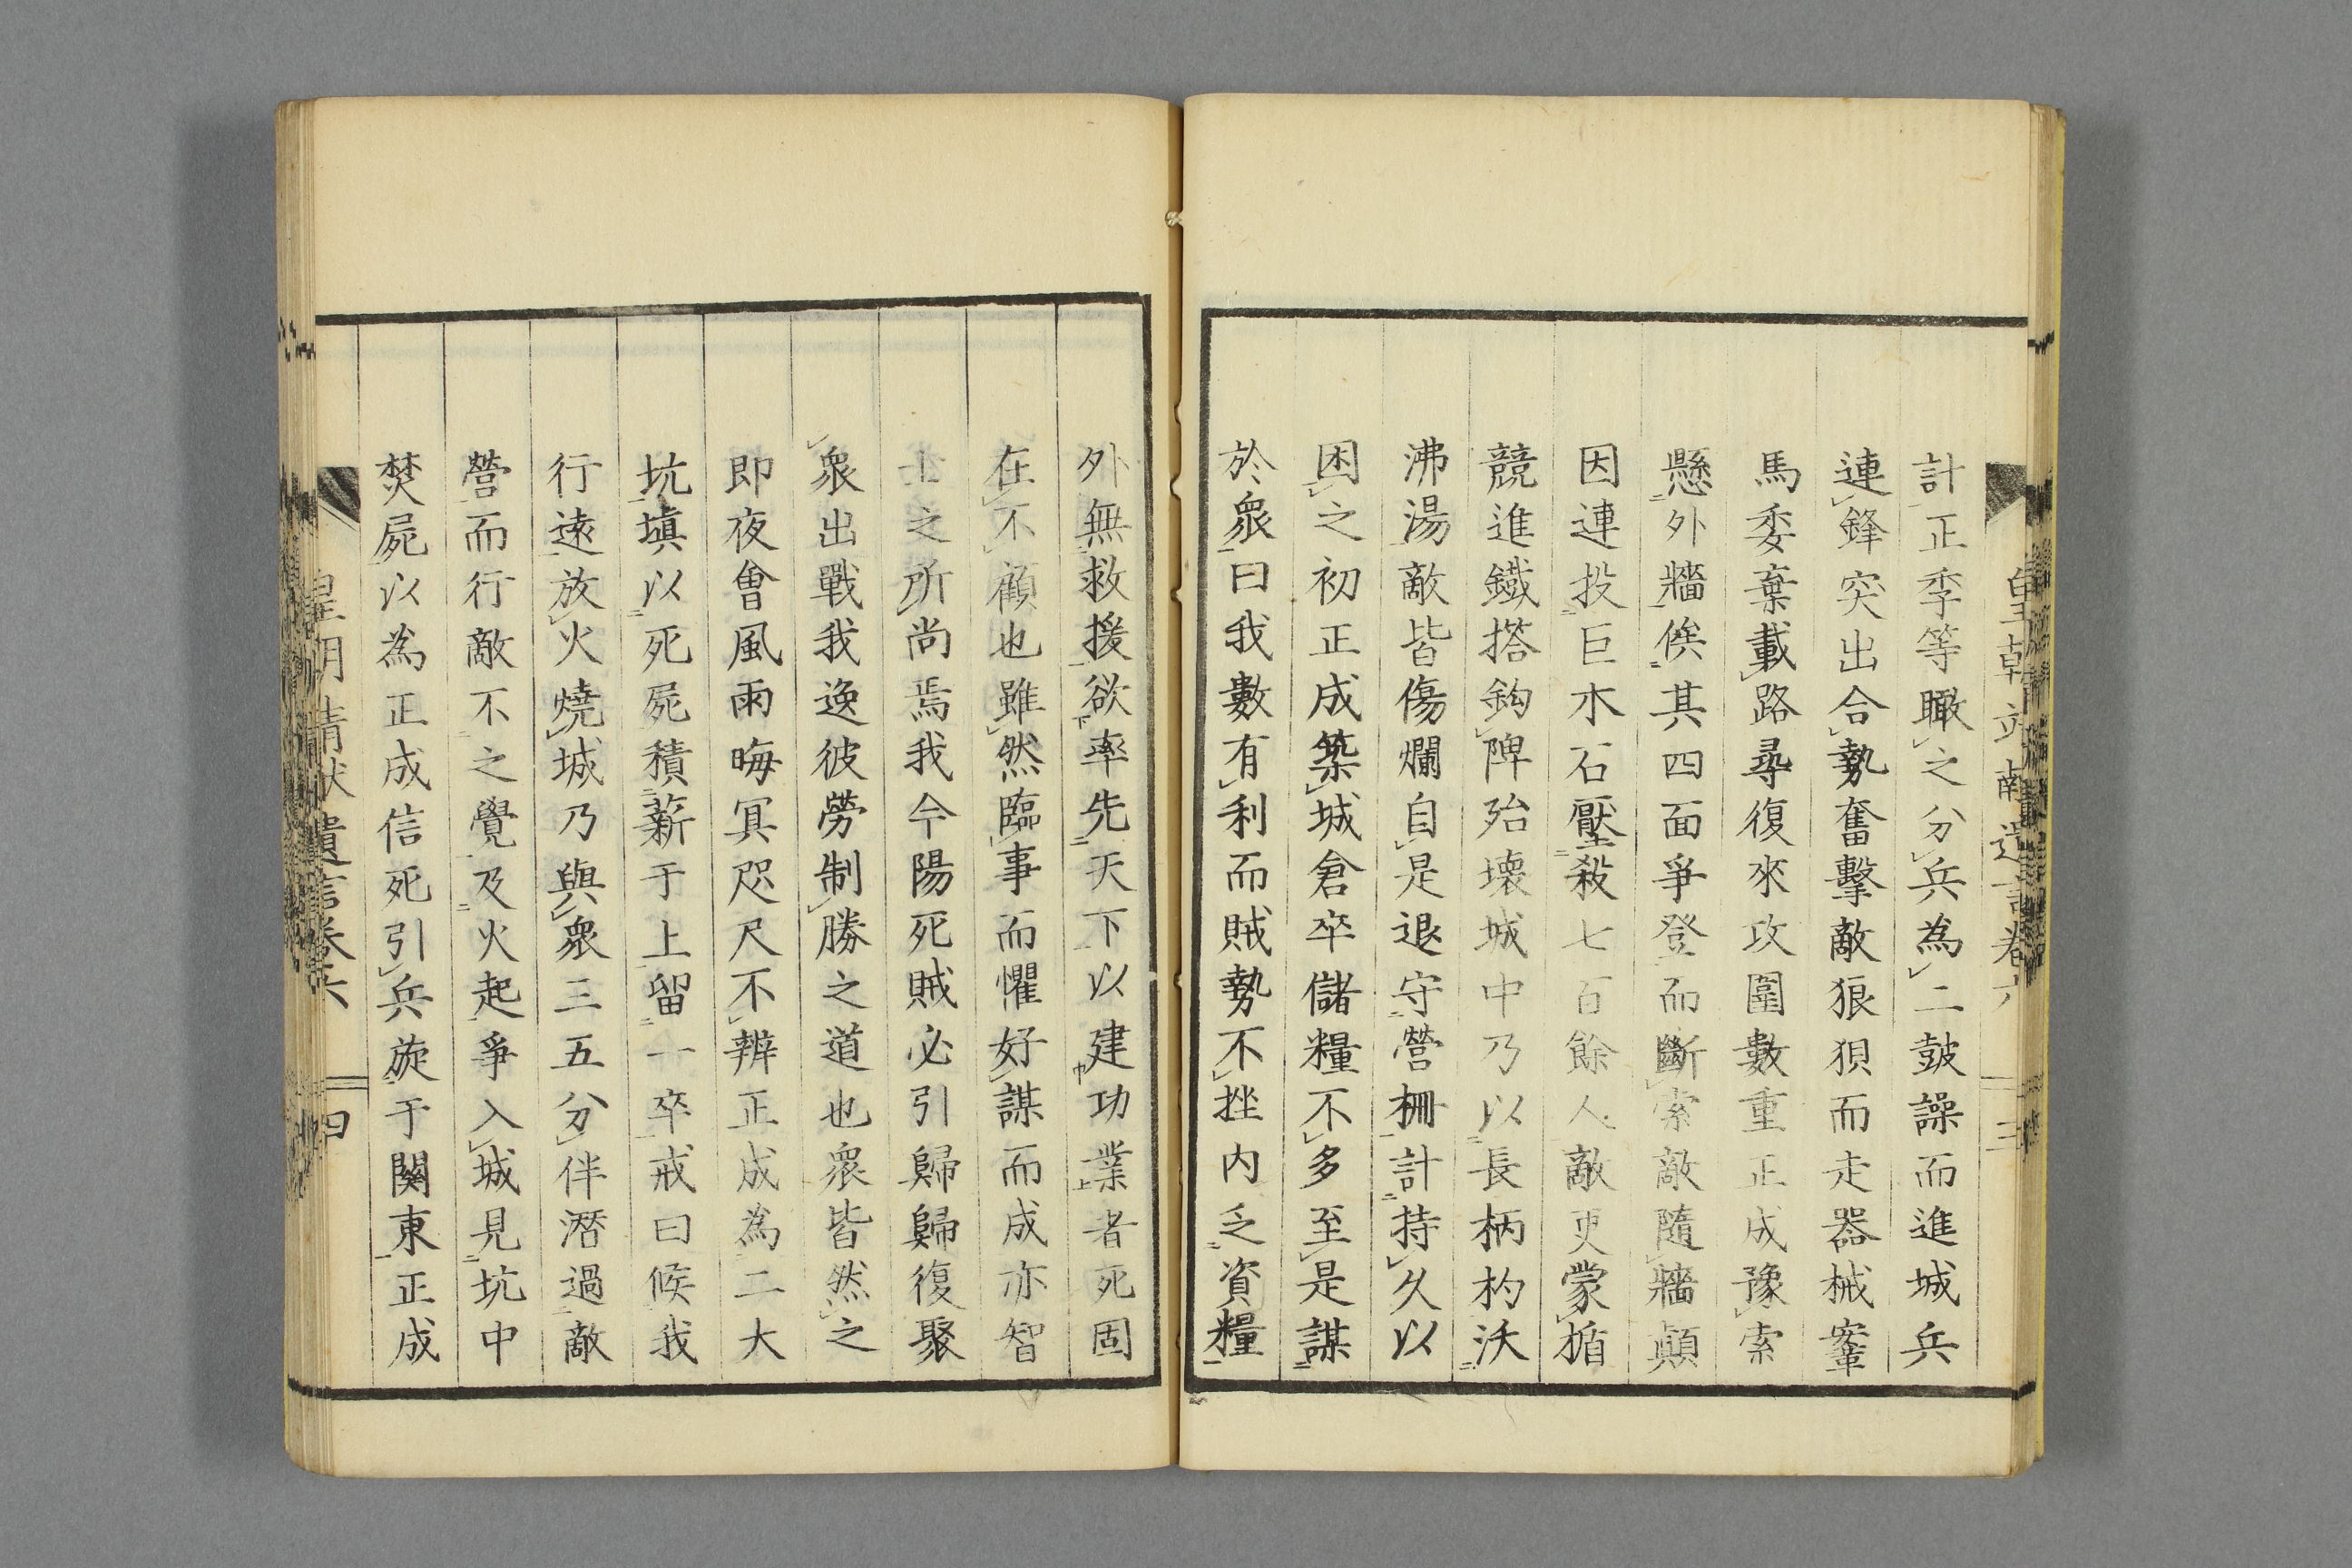 計正季等瞰之分兵為二鼓譟而進城兵
連鋒突出合勢奮擊敵狼狽而走器械鞌
馬委棄載路尋復來攻圍數重正成豫索
懸外牆俟其四面爭登而斷索敵隨牆顛
因連投巨木石壓殺七百餘人敵更蒙楯
競進鐵搭鈎陴殆壞城中乃以長柄杓沃
沸湯敵皆傷爛自是退守營柵計持久以
困之初正成築城倉卒儲糧不多至是謀
於衆曰我數有利而賊勢不挫内乏資糧
外無救援欲率先天下以建功業者死固
在不顧也雖然臨事而懼好謀而成亦智
士之所尚焉我今陽死賊必引歸歸復聚
衆出戰我逸彼勞制勝之道也衆皆然之
即夜會風雨晦冥咫尺不辨正成為二大
坑塡以死屍積薪于上留一卒戒曰候我
行遠放火燒城乃與衆三五分伴潛過敵
營而行敵不之覺及火起爭入城見坑中
焚屍以為正成信死引兵旋于關東正成
四